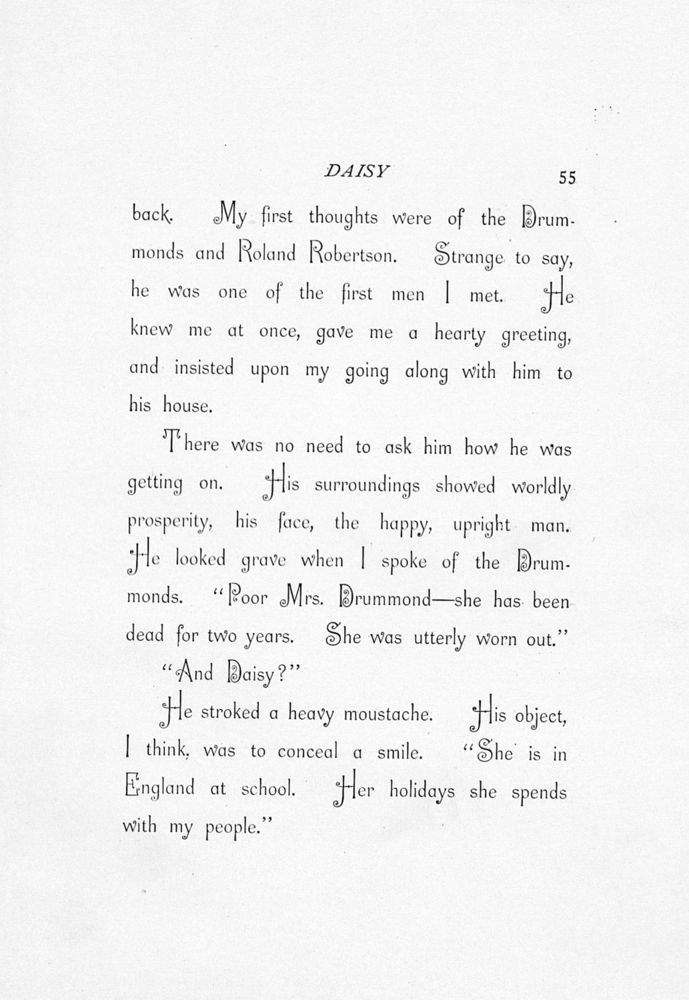 DAISY
55
back. My first thoughts were of the Drum-
monds and Roland Robertson. Strange to say,
he was one of the first men I met. He
knew me at once, gave me a hearty greeting,
and insisted upon my going along with him to
his house.
There was no need to ask him how he was
getting on. His surroundings showed worldly
prosperity, his face, the happy, upright man.
He looked grave when I spoke of the Drum-
monds. “Poor Mrs. Drummond—she has been
dead for two years. She was utterly worn out.”
“And Daisy?”
He stroked a heavy moustache. His object,
I think, was to conceal a smile. “She is in
England at school. Her holidays she spends
with my people.”